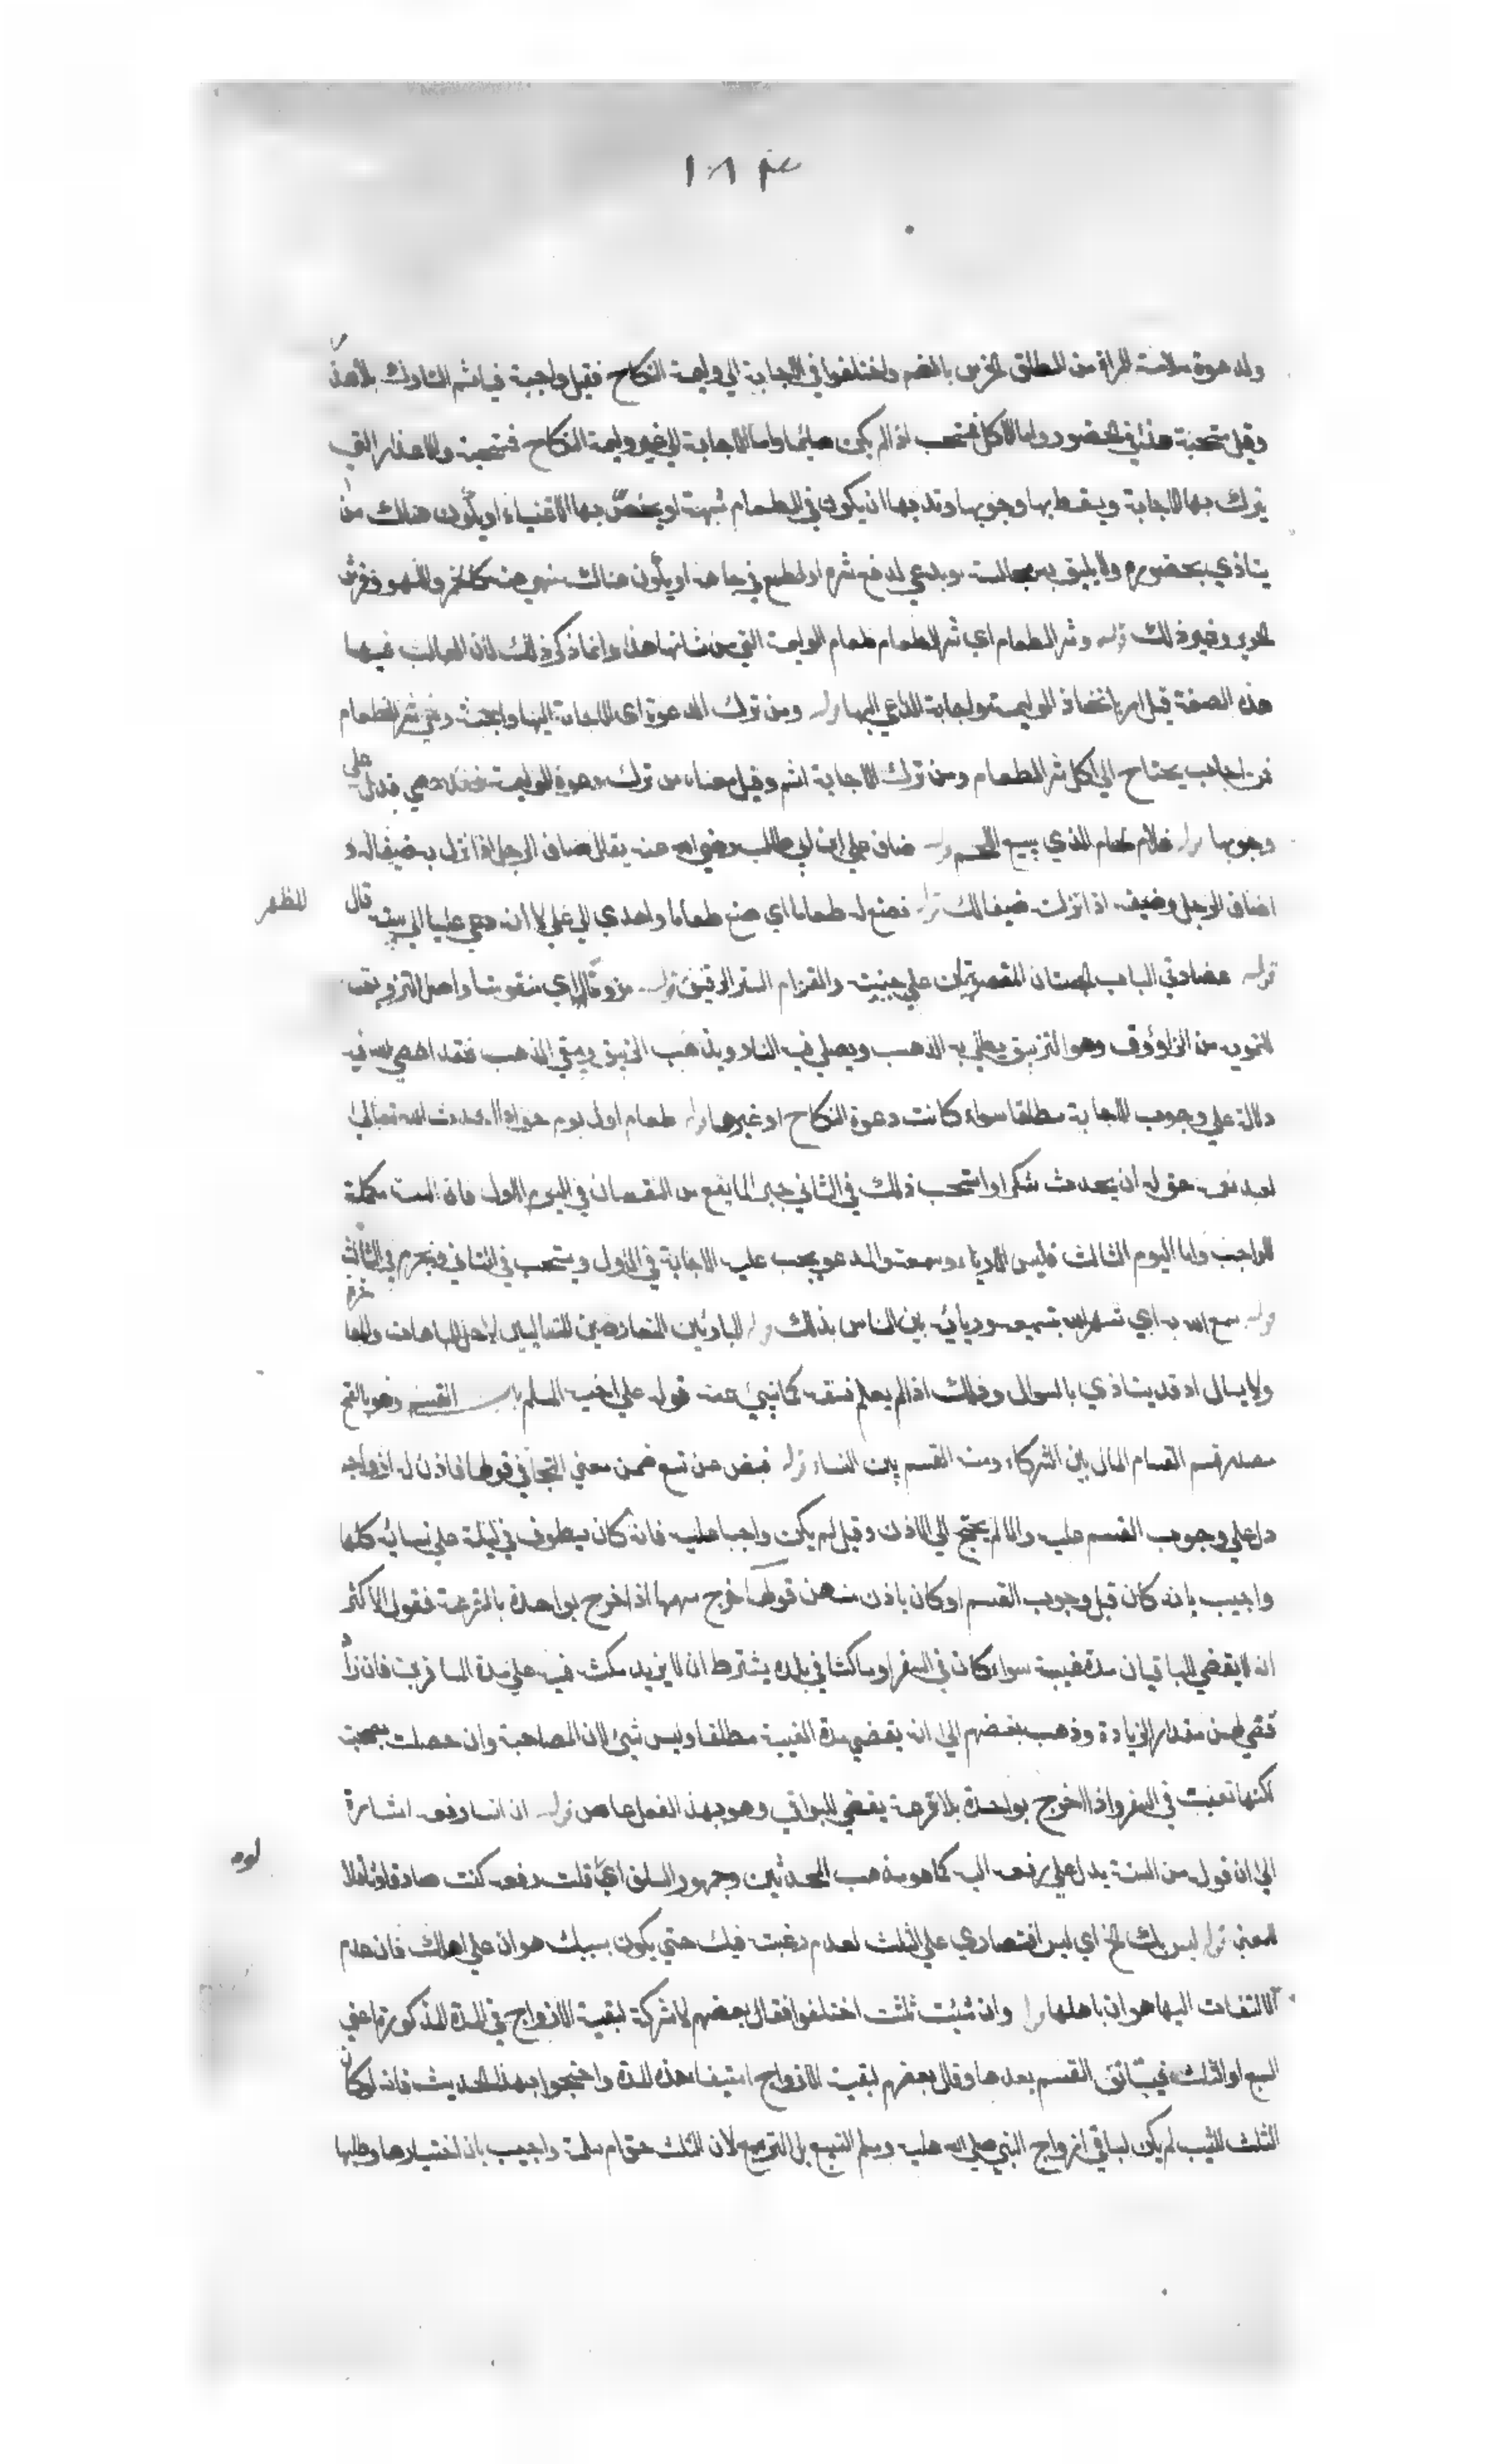 ولدعوة سلامة المراة من الطلق الخرس بالضم واختلفوا في الاجابة الي وليمة النكاح فقيل واجبة فياثم التارك بلا عذر
وقيل مستحبة هذا في الحضور واما الاكل فمستحب اذا لم يكن صايما واما الاجابة الي غير وليمة النكاح فمستحبة والاعذار التي
يترك بها الاجابة ويسقط بها وجوبها وندبها ان يكون في الطعام شبهة او يخص بها الاغنياء او يكون هناك من
يتاذي بحضوره ولا يليق به مجالسته او يدعي لدفع شره او لطمع في جاهه او يكون هناك منهي عنه كالخمر واللهو وفرش
الحرير وغير ذلك قوله وشر الطعام اي شر الطعام طعام الوليمة التي من شانها هذا وانما ذكر ذلك لان الغالب فيها
هذه الصفة قيل امر باتخاذ الوليمة واجابة الداعي اليها قوله ومن ترك الدعوة اي الاجابة اليها
فمن اجاب يحتاج الي اكل شر الطعام ومن ترك الاجابة اثم وقيل معناه من ترك دعوة الوليمة فقد عصي يدل علي
وجوبها قوله غلام لحام الذي يبيع اللحم قوله ضاف علي ابن ابي طالب رضي الله عنه يقال ضاف الرجل اذا نزل به ضيفا له و
اضاف الرجل وضيفه اذا انزلت ضيفا لك قوله فصنع له طعاما اي صنع طعاما واهدي الي علي لا انه دعي عليا الي بيته قال
للظهر
قوله عضادتي الباب الخشبتان المنصوبتان علي جنبيه والقرام الستر الرقيق قوله مزوقا اي منقوشا واصل التزويق
التمويه من الزاؤوق وهو الزيبق يطلي به الذهب ويصلي في النار ويذهب الزيبق ويبقي الذهب فقد عصي الله فيه
دلالة علي وجوب الاجابة مطلقا سواء كانت دعوة النكاح او غيرها قوله طعام اول يوم حق اذا احدث الله تعالي
لعبد نعمة حق له ان يحدث شكرا واستحب ذلك في الثاني جبرا لما يقع من النقصان في اليوم الاول فان السنة مكملة
للواجب واما اليوم الثالث فليس الا رياء وسمعة والمدعو يجب عليه الاجابة في الاول ويستحب في الثاني ويحرم في الثالث
قوله سمع الله به اي شهر الله بتسميعه وريائه بين الناس بذلك قوله المتباريين المتعارضين للتغالبين لاجل المباهاة
ولا يسال اذ قد يتاذي بالسوال وذلك اذا لم يعلم فسقه كما ينبئ عنه قوله علي اخيه المسلم باب القسم وهو بالفتح
مصدر قسم القسام المال بين الشركاء ومنه القسم بين النساء قوله قبض عن تسع ضمن معني التجافي قولها فاذن له ازواجه
دل علي وجوب القسم عليه والا لم يحتج الي الاذن وقيل لم يكن واجبا عليه فانه كان يطوف في ليلة علي نسائه كلها
واجيب بانه كان قبل وجوب القسم او كان باذن منهن قولها خرج سهمها اذا خرج بواحدة بالقرعة فقول الاكثر
انه لا يقضي للباقيات مدة غيبته سواء كان في السفر او ماكثا في بلدة يشترط ان لا يزيد مكثه فيه علي مدة المسافرين فان زاد
قضي لهن مقدار الزيادة وذهب بعضهم الي انه يقضي مدة الغيبة مطلقا وليس شيئ لان المصاحبة وان حصلت بصحبته
لكنها تعبت في السفر واذا خرج بواحدة بلا قرعة يقضي للبواقي وهو بهذا الفعل عاص قوله ان انسا رفعه اشارة
الي ان قوله من السنة يدل علي رفعه اليه كما هو مذهب المحدثين وجمهور السلف اي قلت رفعه كنت صادقا
المعني قوله ليس بك الخ اي ليس اقتصاري علي الثلث لعدم رغبته فيك حتي يكون بسببك هوان علي اهلك فان عدم
الالتفات اليها هوان باهلها قوله وان شئت ثلثت اختلفوا فقال بعضهم لا شركة لبقية الازواج في المدة المذكورة اعني
السبع او الثلث فيستانف القسم بعدها وقال بعضهم لبقية الازواج استيفاء هذه المدة واحتجوا بهذا الحديث فانه لو كان
الثلث للثيب لم يكن لباقي ازواج النبي صلي الله عليه وسلم التسبيع بل التربيع لان الثلث حق ام سلمة واجيب بان اختيارها وطلبها